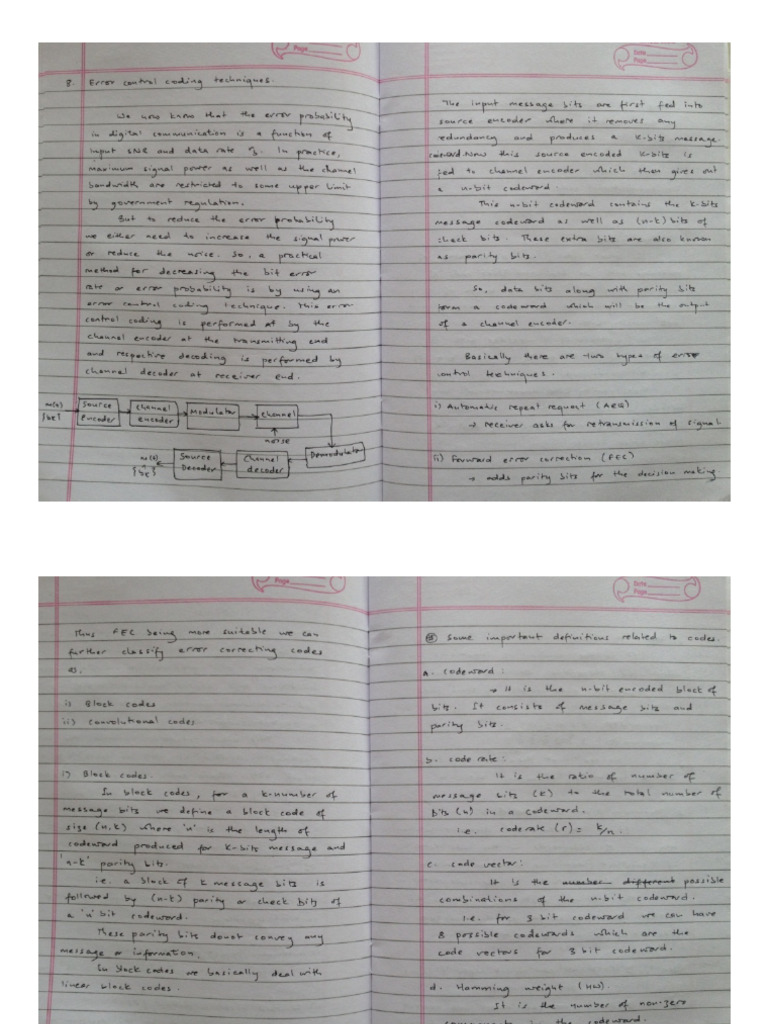 Page
8. Error control coding techniques.
We now know that the error probability
in digital communication is a function of
input SNR and data rate
In practice,
maximum signal power as well as the channel
bandwidth are restricted to some upper limit
by government regulation.
But to reduce the error probability
we either need to increase the signal power
or reduce the noise. So, a practical
method for decreasing the bit error
rate or error probability is by using an
error control coding technique. This error
control coding is performed at by the
channel encoder at the transmitting end
and respective decoding is performed by
channel decoder at receiver end.
Source encoder
Channel encoder
Modulator
Channel
noise
Demodulator
Channel decoder
Source Decoder
Date
Page
The input message bits are first fed into
source encoder where it removes any
redundancy and produces a k-bits message
Now this source encoded k-bits is
fed to channel encoder which then gives out
a n-bit codeword.
This n-bit codeword contains the k-bits
message codeword as well as (n-k) bits of
check bits. These extra bits are also known
as parity bits.
So, data bits along with parity bits
form a codeword which will be the output
of a channel encoder.
Basically there are two types of error
control techniques.
i) Automatic repeat request (ARQ)
→ receiver asks for retransmission of signal
ii) Forward error correction (FEC)
→ adds parity bits for the decision making
Page
Thus FEC being more suitable we can
further classify error correcting codes
as,
i) Block codes
ii) Convolutional codes
i) Block codes.
In block codes, for a k-number of
message bits we define a block code of
size (n,k) where 'n' is the length of
codeword produced for k-bits message and
'n-k' parity bits.
i.e. a block of k message bits is
followed by (n-k) parity or check bits of
a 'n' bit codeword.
These parity bits donot convey any
message or information.
In block codes we basically deal with
linear block codes.
Date
Page
Some important definitions related to codes.
a. Codeword:
→ It is the n-bit encoded block of
bits. It consists of message bits and
parity bits.
b. code rate:
It is the ratio of number of
message bits (k) to the total number of
bits (n) in a codeword.
i.e. code rate (r) = k/n.
c. code vector:
It is the number different possible
combinations of the n-bit codeword.
i.e. for 3 bit codeword we can have
8 possible codewords which are the
code vectors for 3 bit codeword.
d. Hamming weight (HW):
It is the number of non-zero
components in the codeword.